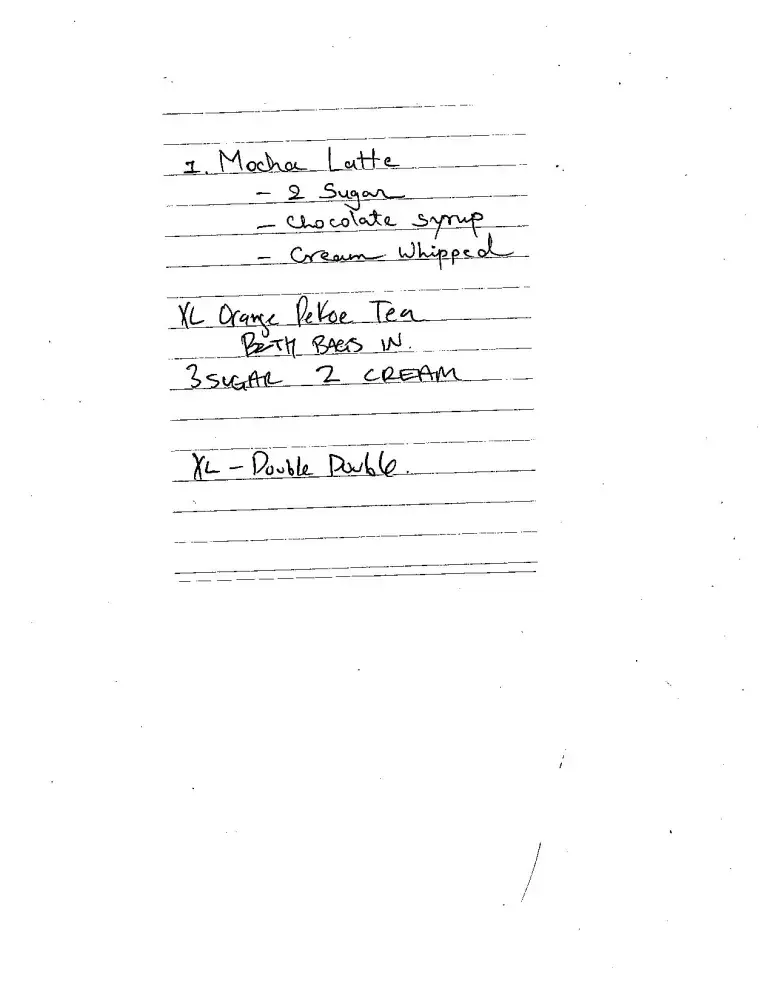 1. Mocha Latte
- 2 Sugar
- Chocolate syrup
- Cream Whipped
XL Orange Pekoe Tea
BOTH BAGS IN.
3 SUGAR 2 CREAM
XL - Double Double.